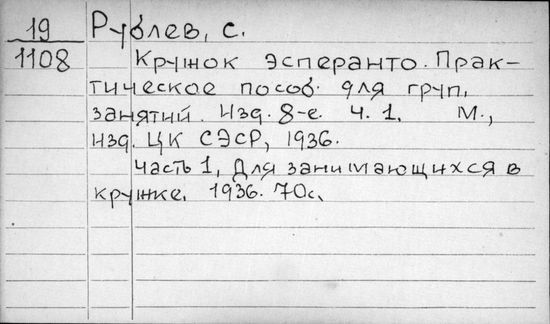 19 Рублев, С.
1108 Кружок эсперанто. Прак-
тическое пособ. для груп.
занятий. Изд. 8-е. Ч. 1. М.,
изд. ЦК СЭСР, 1936.
Часть 1, Для занимающихся в
кружке. 1936. 70с.